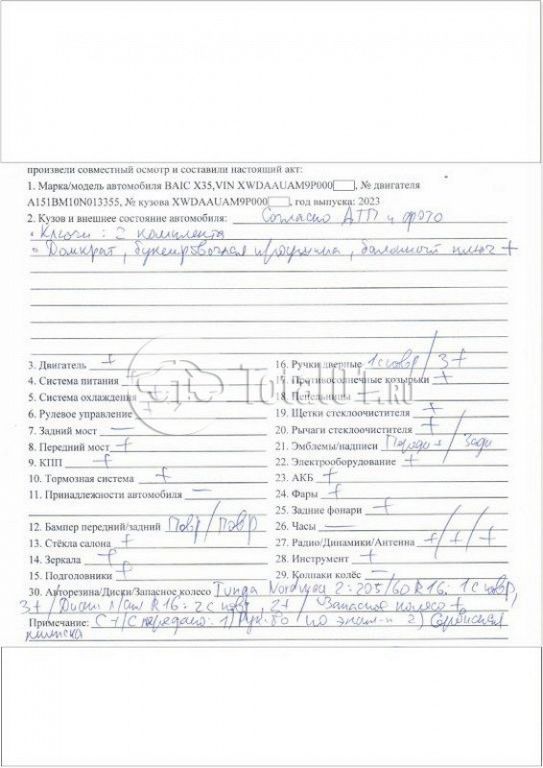 произвели совместный осмотр и составили настоящий акт:
1. Марка/модель автомобиля BAIC X35,VIN XWDAAUAM9P000, № двигателя
A151BM10N013355, № кузова XWDAAUAM9P000, год выпуска: 2023
2. Кузов и внешнее состояние автомобиля: Согласно ДТП и фото
• Ключи: 2 комплекта
• Домкрат, буксировочная проушина, балонный ключ +
3. Двигатель +
4. Система питания +
5. Система охлаждения +
6. Рулевое управление +
7. Задний мост —
8. Передний мост +
9. КПП +
10. Тормозная система +
11. Принадлежности автомобиля —
12. Бампер передний/задний Повр/Повр
13. Стёкла салона +
14. Зеркала +
15. Подголовники +
16. Ручки дверные 1 с повр/3+
17. Противосолнечные козырьки +
18. Пепельницы —
19. Щетки стеклоочистителя +
20. Рычаги стеклоочистителя +
21. Эмблемы/надписи Перед + / Зад +
22. Электрооборудование +
23. АКБ +
24. Фары +
25. Задние фонари +
26. Часы —
27. Радио/Динамики/Антенна +/+/+
28. Инструмент +
29. Колпаки колёс —
30. Авторезина/Диски/Запасное колесо Tunga Nordway 2: 205/60 R16: 1 с повр,
3+ / Диски R16: 2 с повр, 2+ / Запасное колесо +
Примечание: С ТС передано: 1) Рук-во по эксп-и 2) Сервисная
книжка
TOTAL01.RU